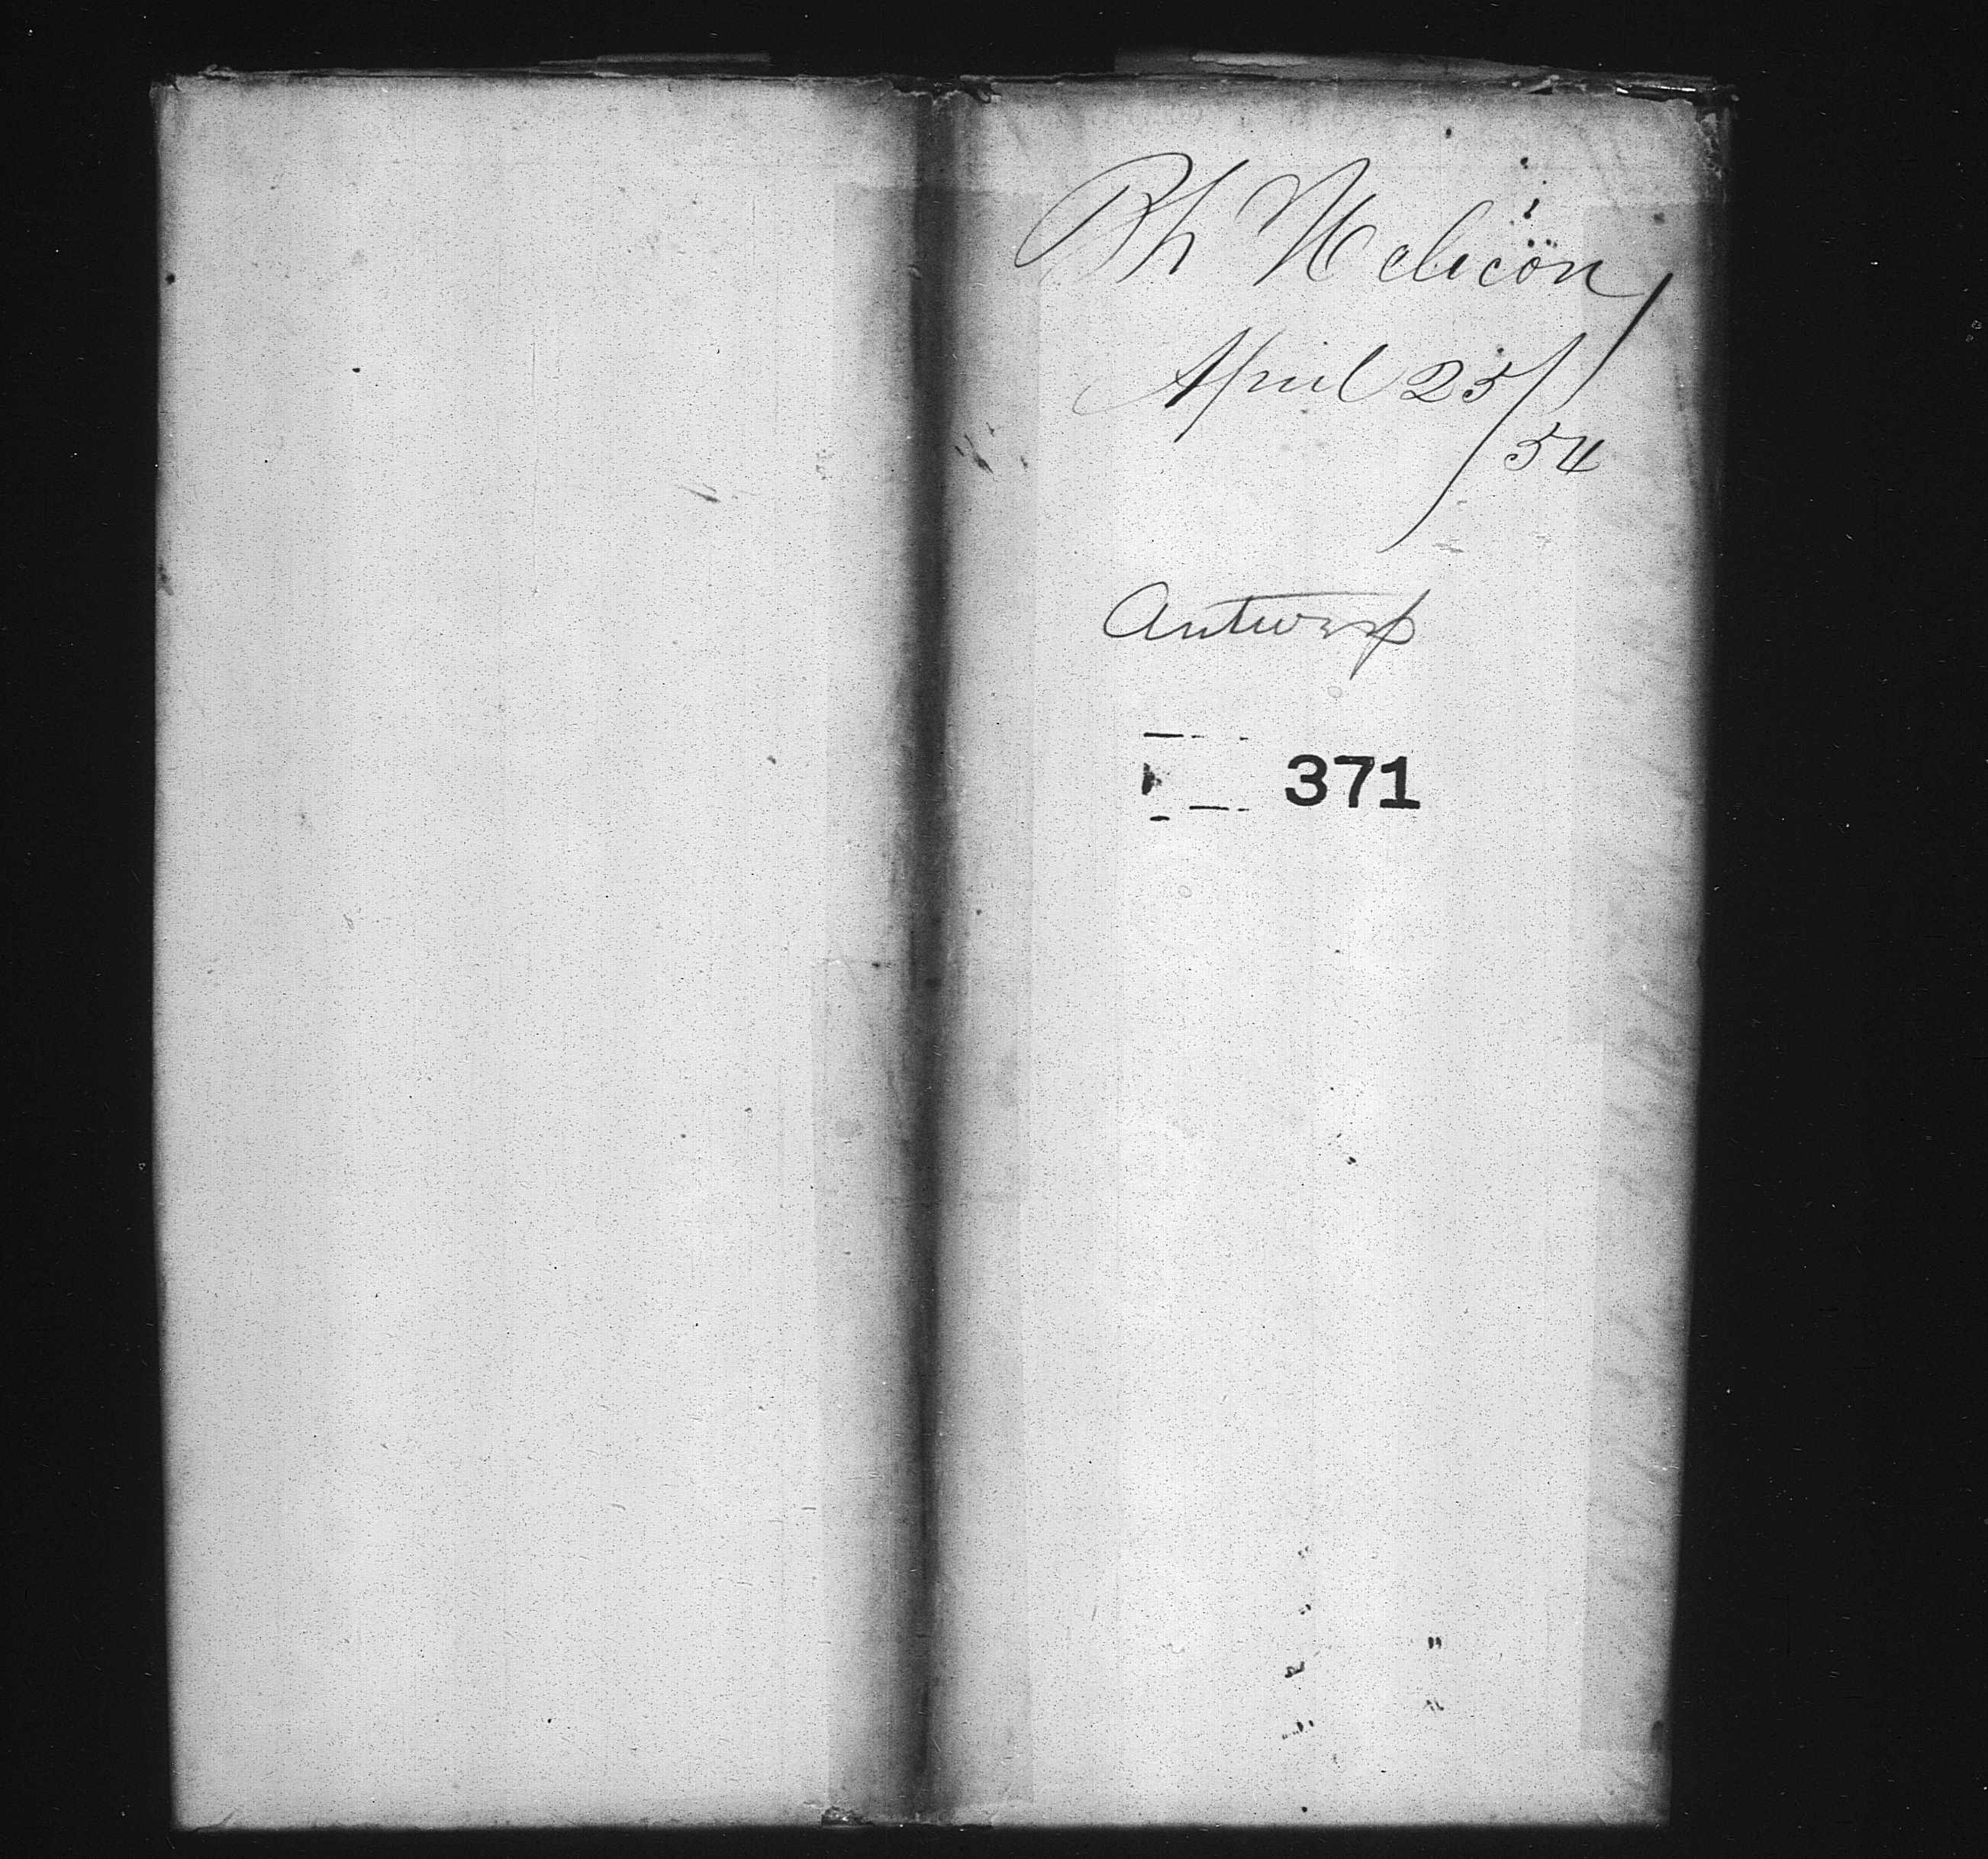 Bk Helicon
April 25/
54
Antwerp
371